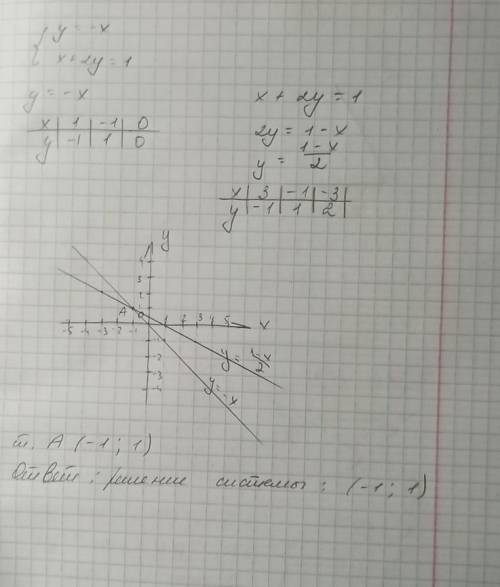 { y = -x
x + 2y = 1
y = -x
x | 1 | -1 | 0
y | -1 | 1 | 0
x + 2y = 1
2y = 1 - x
y = (1 - x)/2
x | 3 | -1 | -3
y | -1 | 1 | 2
y
4
3
2
A
0
-5 -4 -3 -2 -1 1 2 3 4 5 x
-2
-3
-4
y = (1-x)/2
y = -x
т. А (-1; 1)
Ответ: решение системы: (-1; 1)